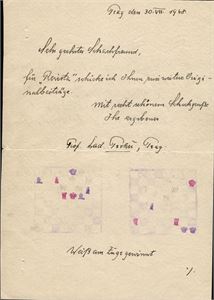 Prag den 30. VII 1948
Sehr geehrter Schachfreund,
für „Revista“ schicke ich Ihnen zwei weitere Origi-
nalbeiträge.
Mit recht schönem Schachgruße
Ihr ergebener
Prof. Lad. Prag
Weiß am Zuge gewinnt